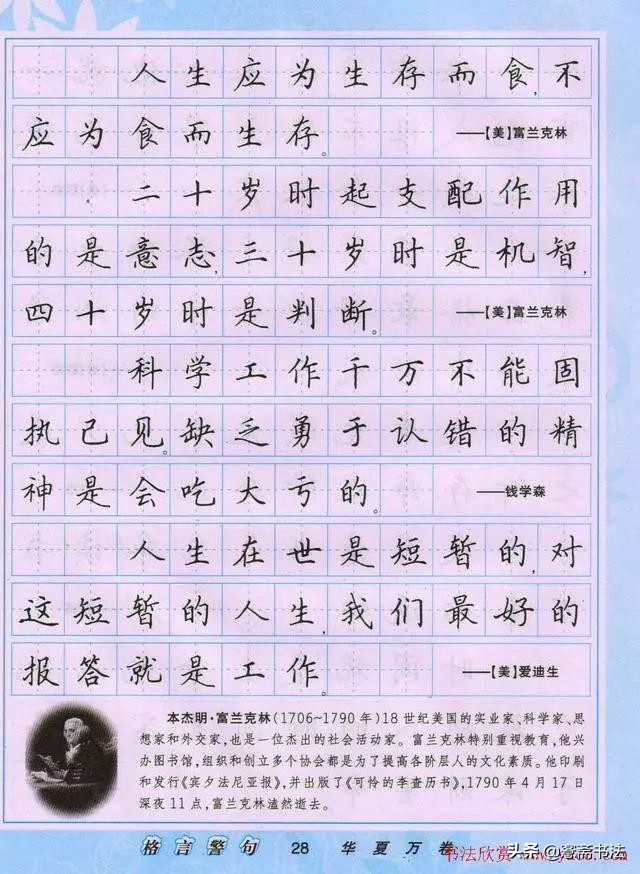 人生应为生存而食，不
应为食而生存。 ——【美】富兰克林
二十岁时起支配作用
的是意志，三十岁时是机智，
四十岁时是判断。 ——【美】富兰克林
科学工作千万不能固
执己见。缺乏勇于认错的精
神是会吃大亏的。 ——钱学森
人生在世是短暂的，对
这短暂的人生，我们最好的
报答就是工作。 ——【美】爱迪生
本杰明·富兰克林(1706~1790年)18世纪美国的实业家、科学家、思
想家和外交家，也是一位杰出的社会活动家。富兰克林特别重视教育，他兴
办图书馆，组织和创立多个协会都是为了提高各阶层人的文化素质。他印刷
和发行《宾夕法尼亚报》，并出版了《可怜的李查历书》，1790年4月17日
深夜11点，富兰克林溘然逝去。
格言警句 28 华夏万卷
书法欣赏
头条@寳斋书法